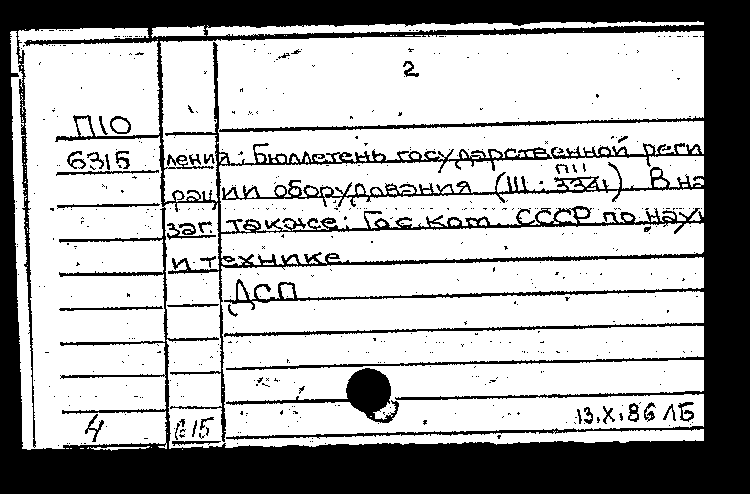 2
П10
6315 лений: Бюллетень государственной реги
рации оборудования (Ш: П11/3341). В на
заг. также: Гос. ком. СССР по наук
и технике.
ДСП
4 с 15 13.X.86 ЛБ